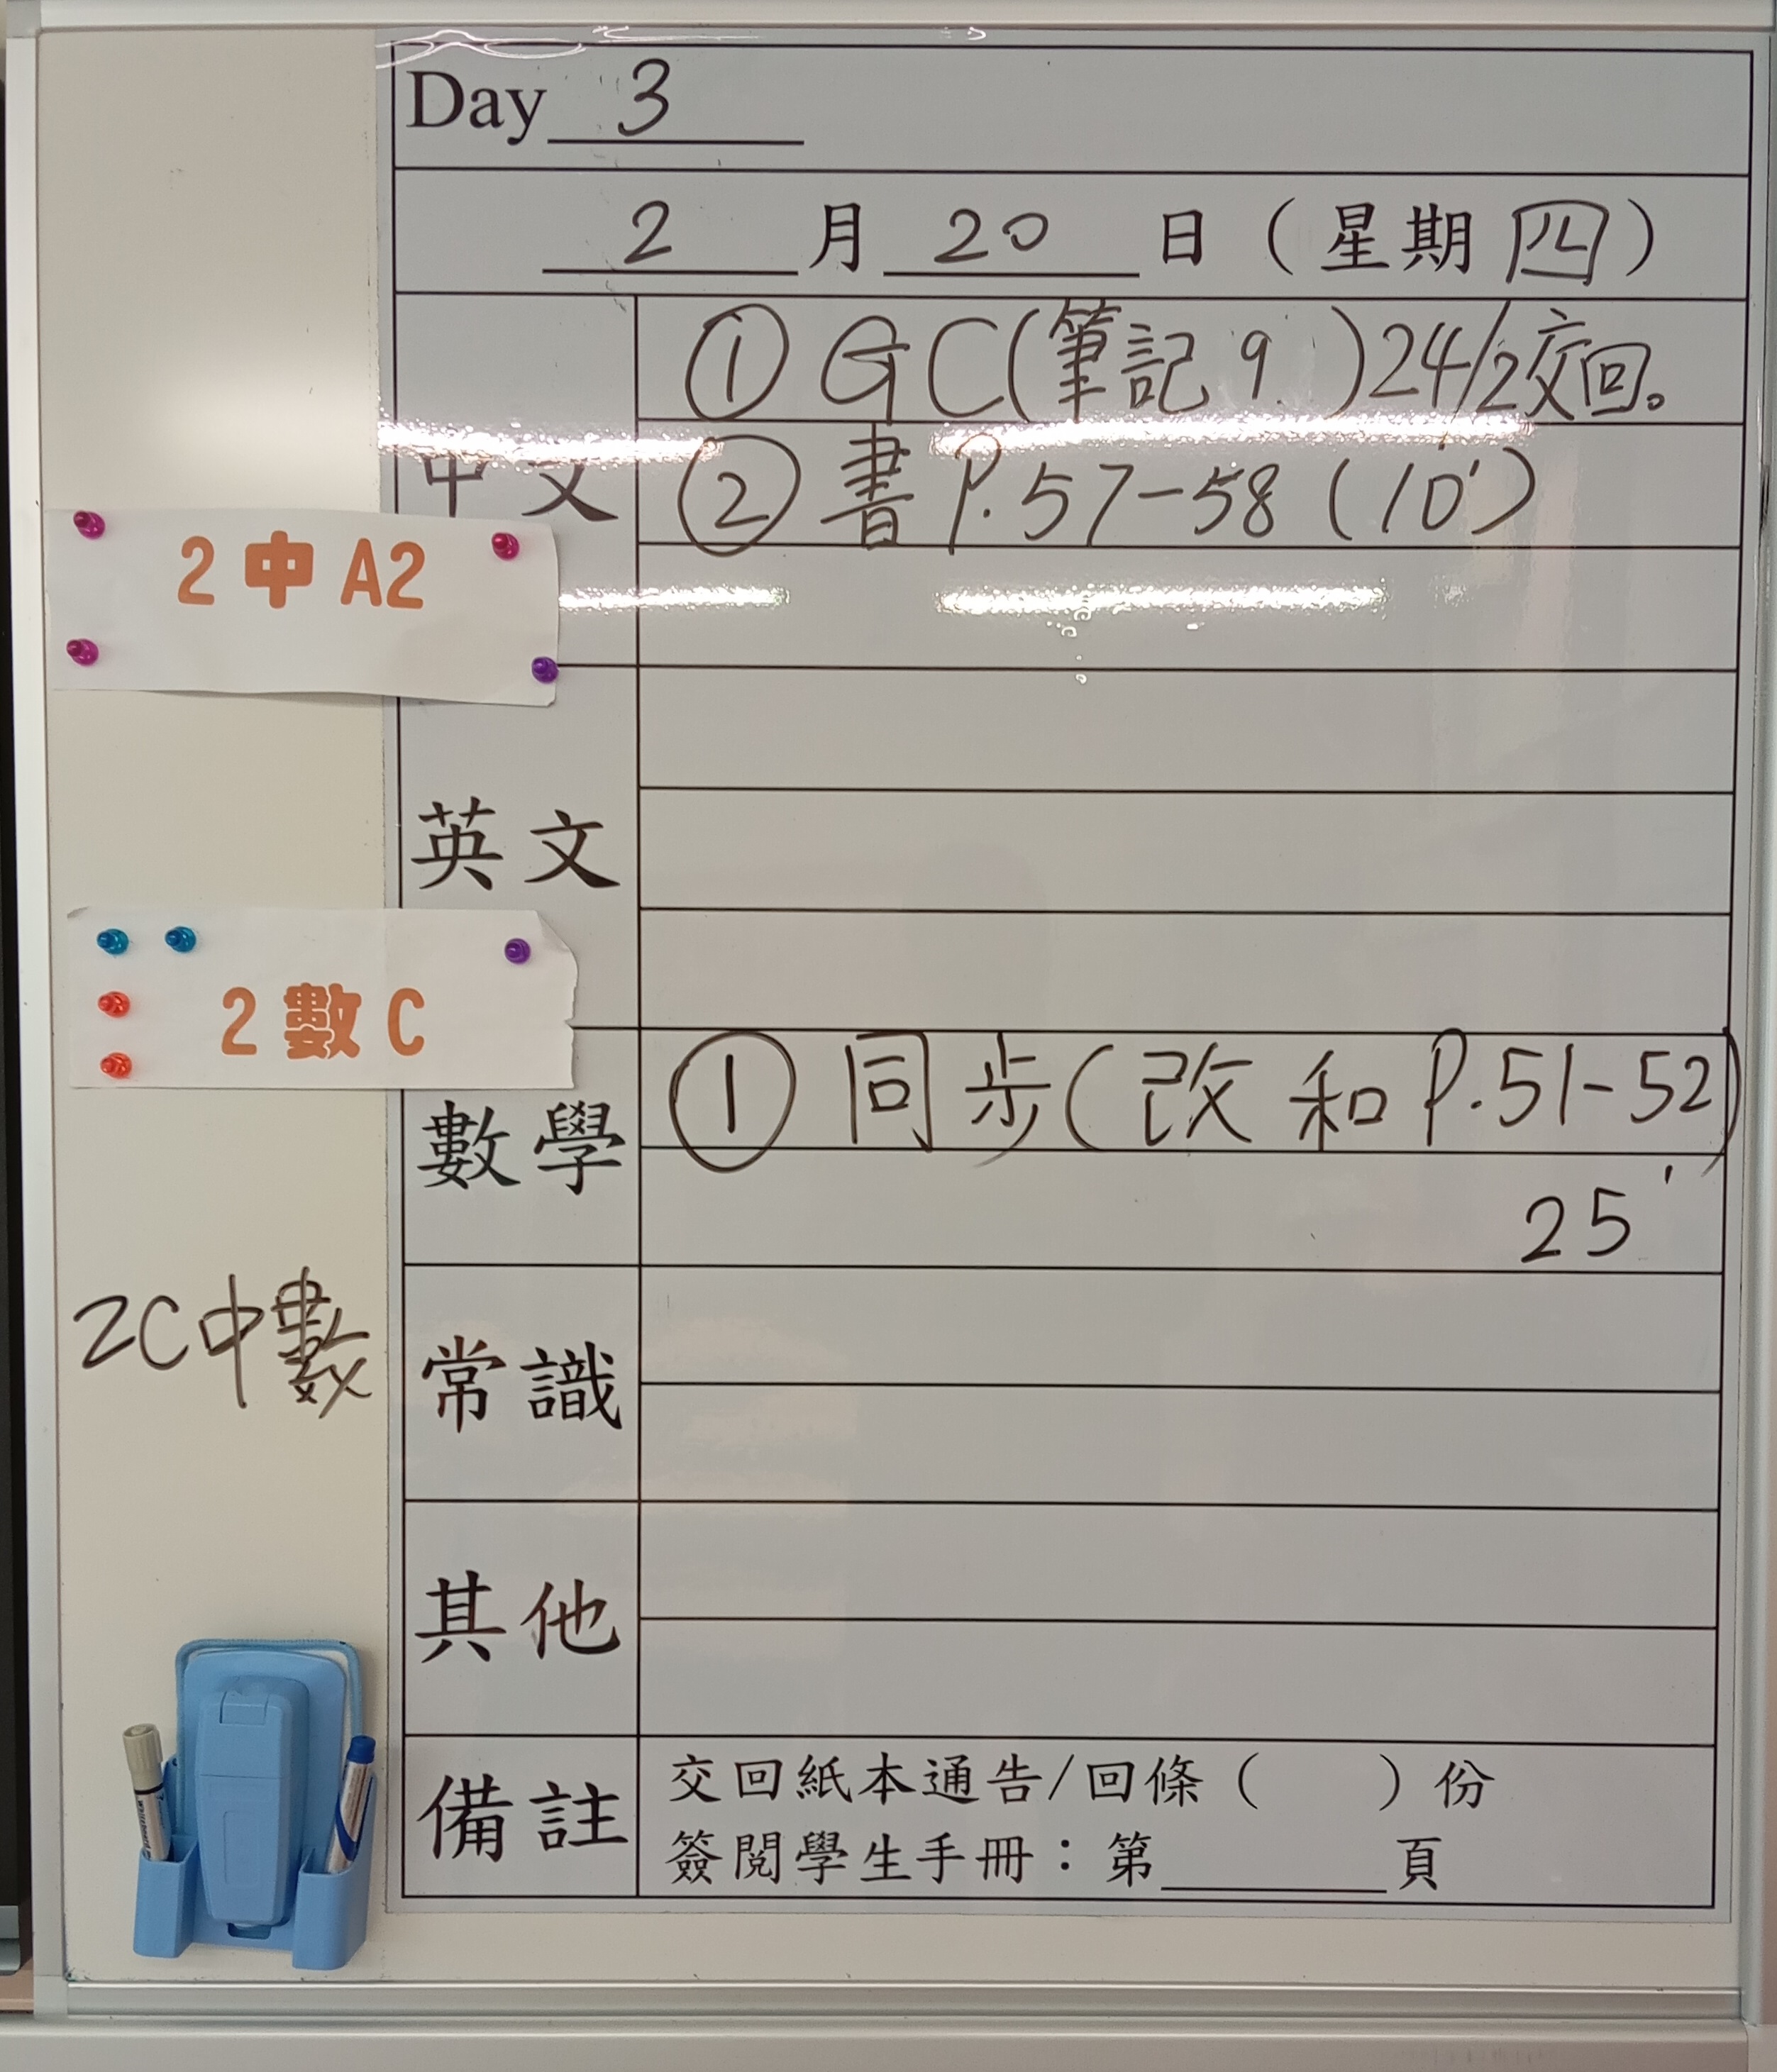 Day 3
2 月 20 日 (星期四)
中文
① GC(筆記9.)24/2交回。
② 書 P.57-58 (10')
2中A2
英文
2數C
數學
① 同步(改和 P.51-52)
25'
2C中數
常識
其他
備註
交回紙本通告/回條( )份
簽閱學生手冊:第______頁